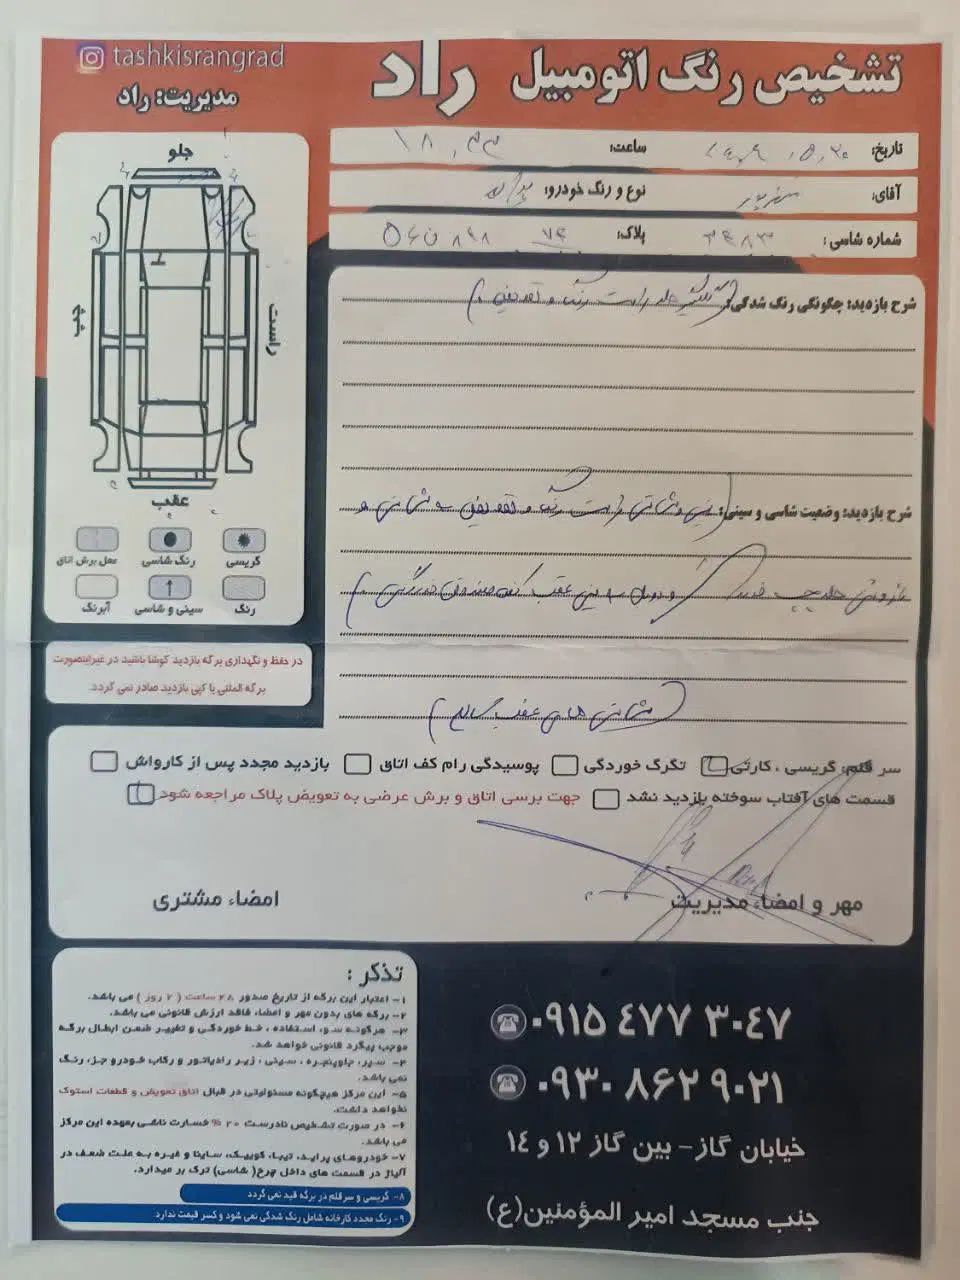 tashkisrangrad
تشخیص رنگ اتومبیل راد
مدیریت: راد
تاریخ:
ساعت: ۱۸,۳۳
آقای:
نوع و رنگ خودرو:
شماره شاسی: ۳۴۸۳
پلاک: ۷۴ ۸۹۸ ن ۵۶
جلو
راست
چپ
عقب
گریسی
رنگ شاسی
محل برش اتاق
رنگ
سینی و شاسی
آبرنگ
در حفظ و نگهداری برگه بازدید کوشا باشید در غیراینصورت
برگه المثنی یا کپی بازدید صادر نمی گردد.
شرح بازدید: چگونگی رنگ شدگی: (گلگیر جلو راست رنگ و تعویض)
شرح بازدید: وضعیت شاسی و سینی: رنگ و تعویض
عقب
(شاسی های عقب سالم)
سر قلم، گریسی ، کارتی
تگرگ خوردگی
پوسیدگی رام کف اتاق
بازدید مجدد پس از کارواش
قسمت های آفتاب سوخته بازدید نشد
جهت برسی اتاق و برش عرضی به تعویض پلاک مراجعه شود
مهر و امضاء مدیریت
امضاء مشتری
تذکر :
۱- اعتبار این برگه از تاریخ صدور ۴۸ ساعت ( ۲ روز ) می باشد.
۲- برگه های بدون مهر و امضاء، فاقد ارزش قانونی می باشد.
۳- هرگونه سوء استفاده ، خط خوردگی و تغییر ضمن ابطال برگه
موجب پیگرد قانونی خواهد شد.
۴- سپر، جلوپنجره ، سینی ، زیر رادیاتور و رکاب خودرو جزء رنگ
نمی باشد.
۵- این مرکز هیچگونه مسئولیتی در قبال اتاق تعویض و قطعات استوک
نخواهد داشت.
۶- در صورت تشخیص نادرست ۲۰ % خسارت ناشی بعهده این مرکز
می باشد.
۷- خودروهای پراید، تیبا، کوییک، ساینا و غیره به علت ضعف در
آلیاژ در قسمت های داخل چرخ( شاسی) ترک بر میدارد.
۸- گریسی و سرقلم در برگه قید نمی گردد
۹- رنگ مجدد کارخانه شامل رنگ شدگی نمی شود و کسر قیمت ندارد
۰۹۱۵ ۴۷۷ ۳۰۴۷
۰۹۳۰ ۸۶۲ ۹۰۲۱
خیابان گاز- بین گاز ۱۲ و ۱۴
جنب مسجد امیر المؤمنین(ع)